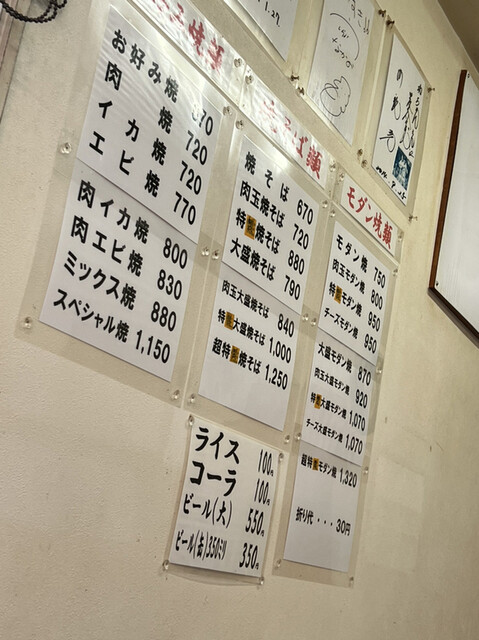 焼そば類
モダン焼類
お好み焼 670
肉焼 720
イカ焼 720
エビ焼 770
肉イカ焼 800
肉エビ焼 830
ミックス焼 880
スペシャル焼 1,150
焼そば 670
肉玉焼そば 720
焼そば 880
大盛焼そば 790
肉玉大盛焼そば 840
大盛焼そば 1,000
焼そば 1,250
モダン焼 750
肉玉モダン焼 800
モダン焼 950
チーズモダン焼 950
大盛モダン焼 870
肉玉大盛モダン焼 920
大盛モダン焼 1,070
チーズ大盛モダン焼 1,070
モダン焼 1,320
折り代・・・30円
ライス 100円
コーラ 100円
ビール(大) 550円
ビール(缶)350ミリ 350円